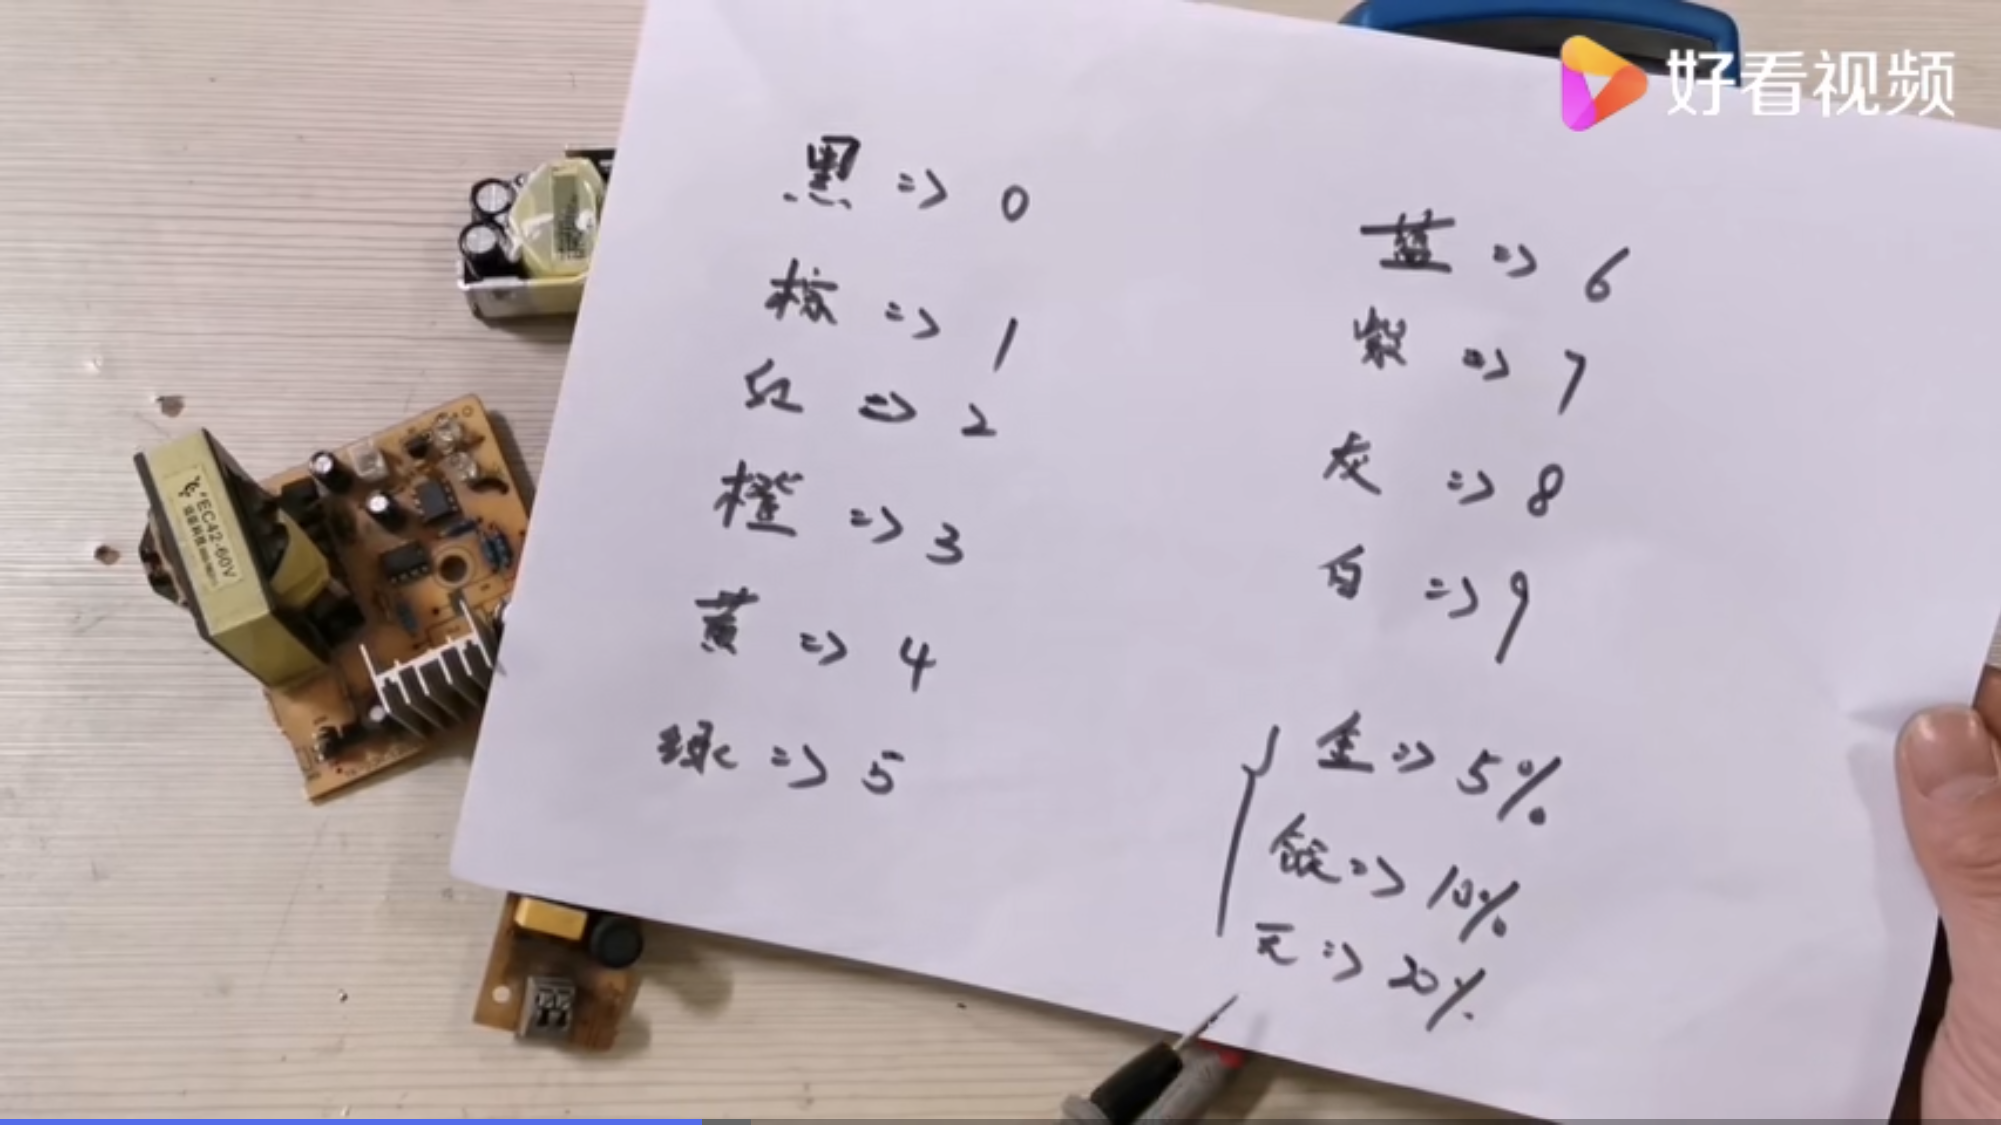 好看视频
黑 => 0
棕 => 1
红 => 2
橙 => 3
黄 => 4
绿 => 5
蓝 => 6
紫 => 7
灰 => 8
白 => 9
金 => 5%
银 => 10%
无 => 20%
EC42-60V